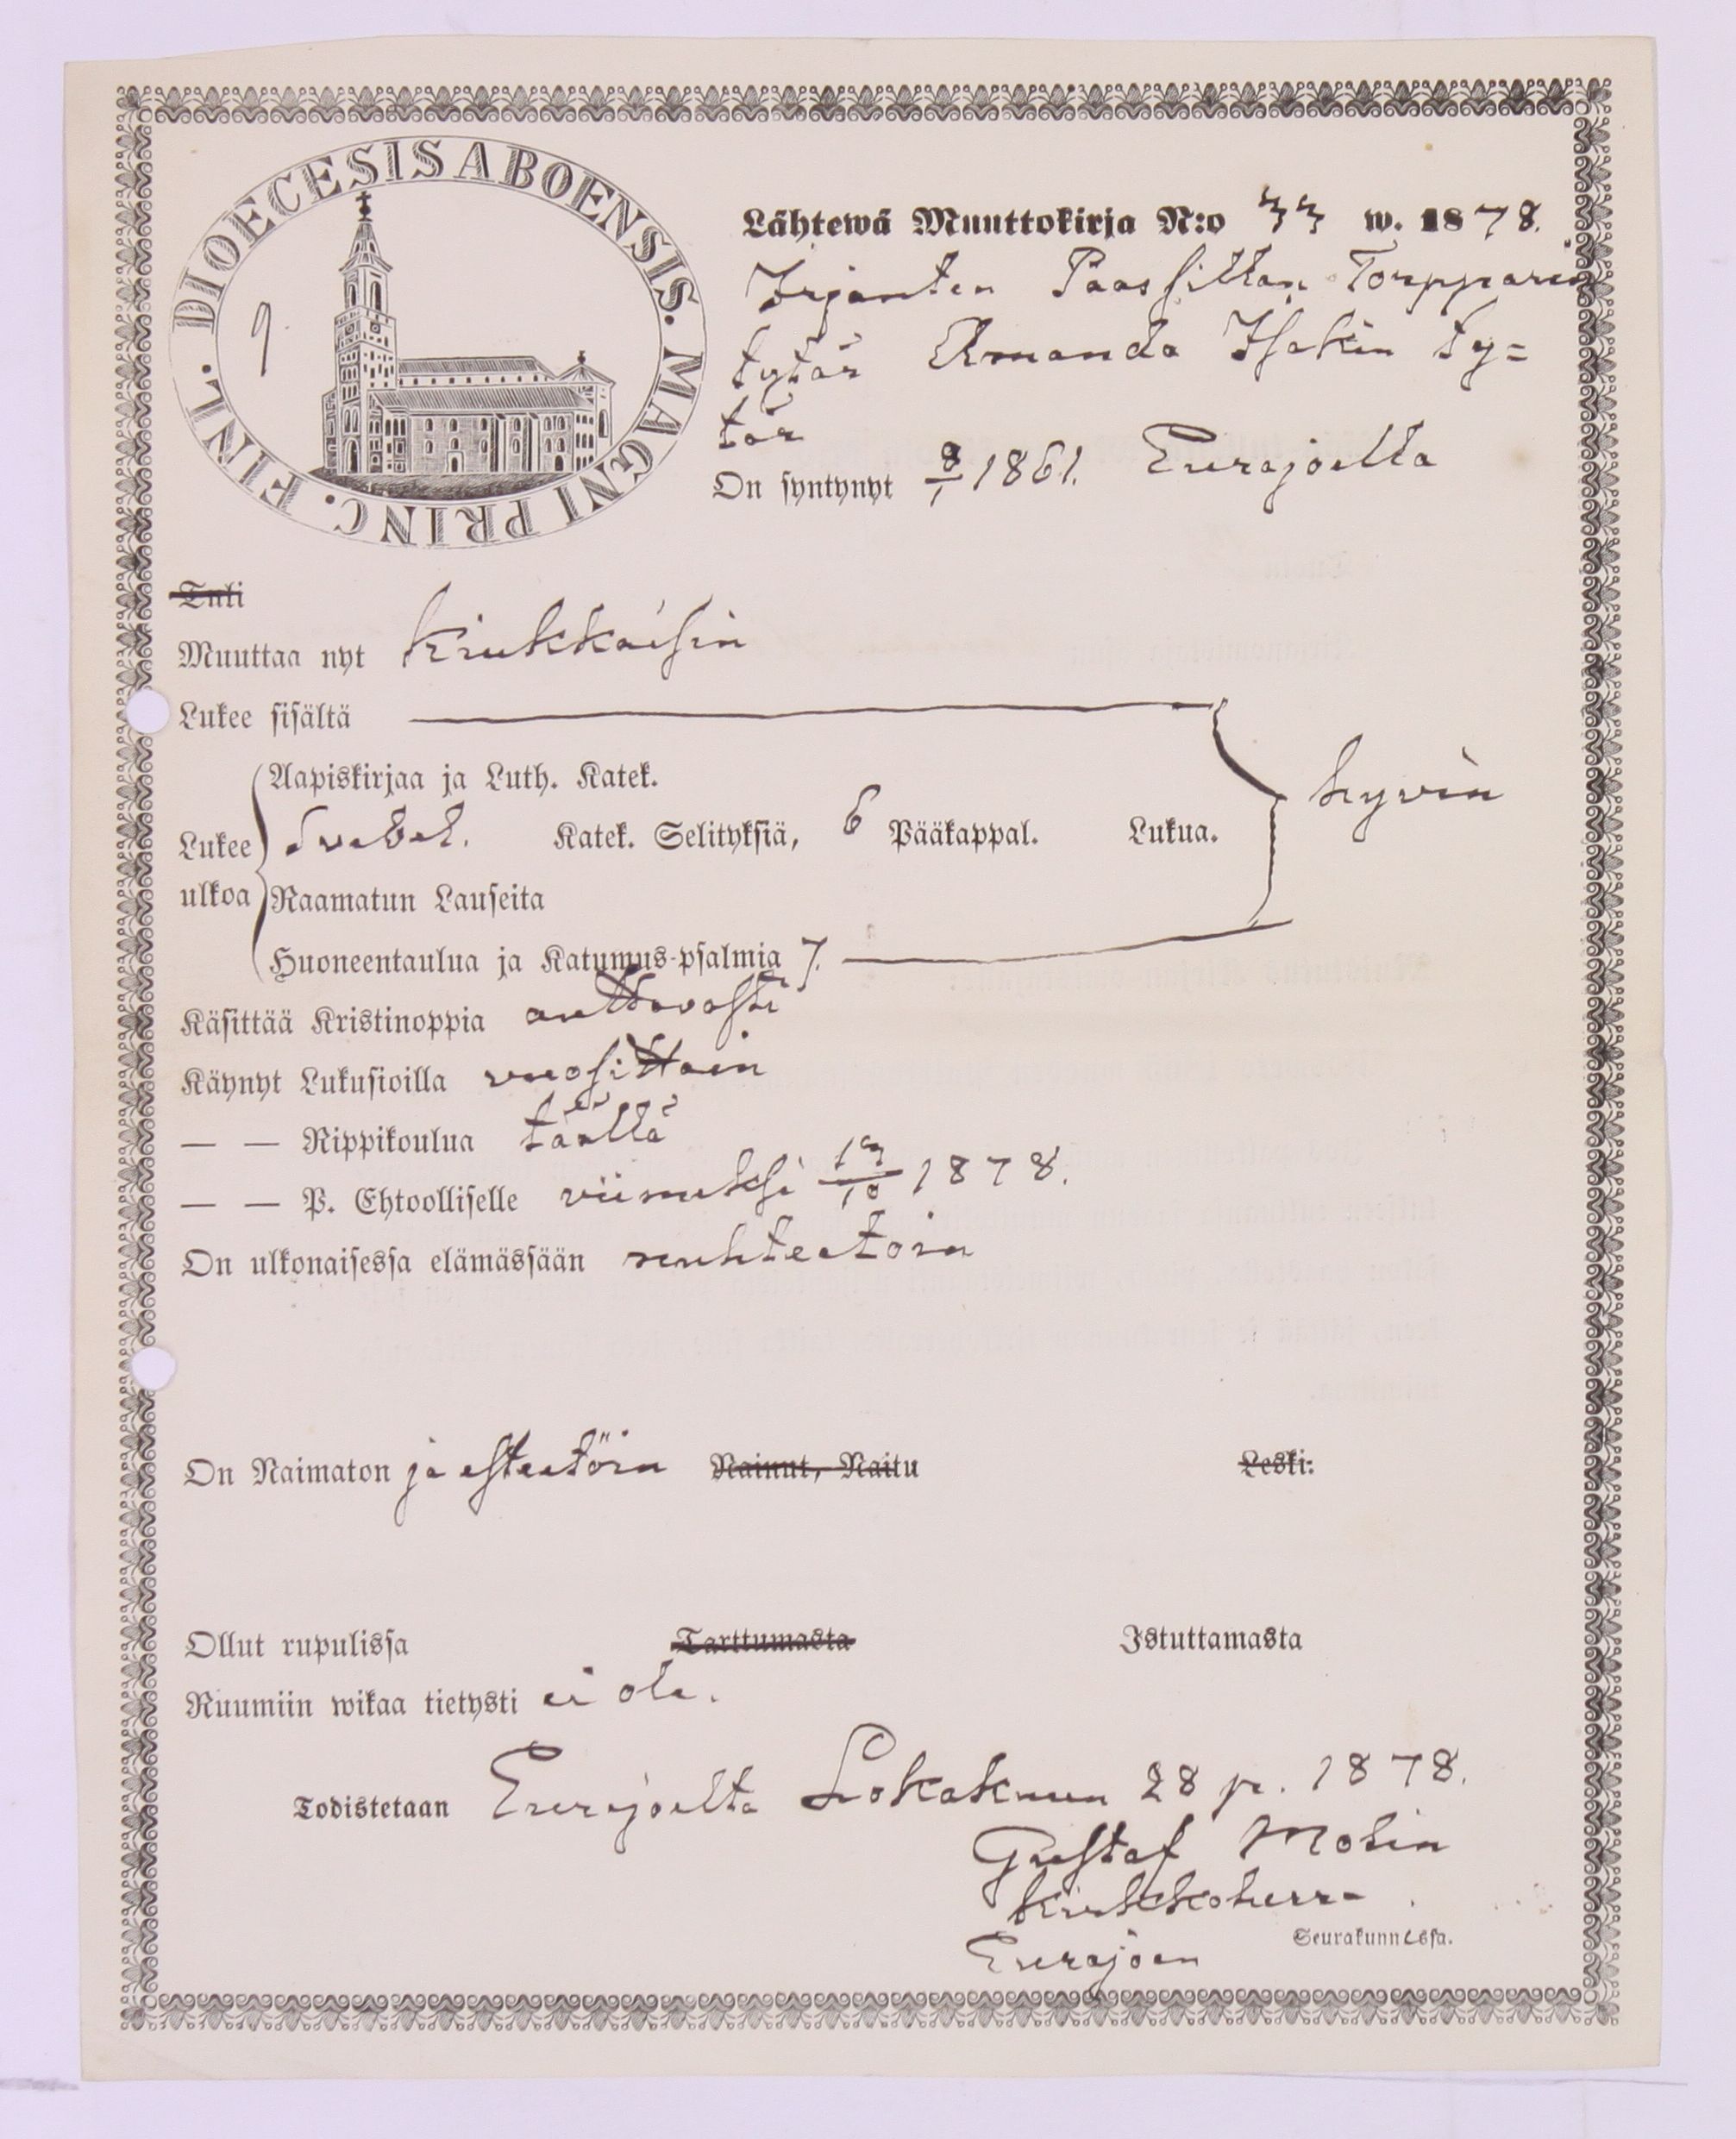 DIOECESIS ABOENSIS. MAGNI PRINC. FINL.
9.
Lähtewä Muuttokirja N:o 33 w. 1878.
Irjanten Paassillan Torpparin
tytär Amanda Isakin ty=
tär
On syntynyt 8/1 1861. Eurajoella
Tuli
Muuttaa nyt Kiukkaisin
Lukee sisältä
Aapiskirjaa ja Luth. Katek.
hyvin
Lukee ulkoa Svebel. Katek. Selityksiä, 6 Pääkappal. Lukua.
Raamatun Lauseita
Huoneentaulua ja Katumus-psalmia 7.
Käsittää Kristinoppia auttavasti
Käynyt Lukusioilla vuosittain
— — Rippikoulua täällä
— — P. Ehtoolliselle viimeksi 13/10 1878.
On ulkonaisessa elämässään nuhteetoin
On Naimaton ja esteetöin Nainut, Naitu Leski:
Ollut rupulissa Tarttumasta Istuttamasta
Ruumiin wikaa tietysti ei ole.
Todistetaan Eurajoella Lokakuun 28 p. 1878.
Gustaf Molin
Kirkkoherra
Eurajoen Seurakunnassa.